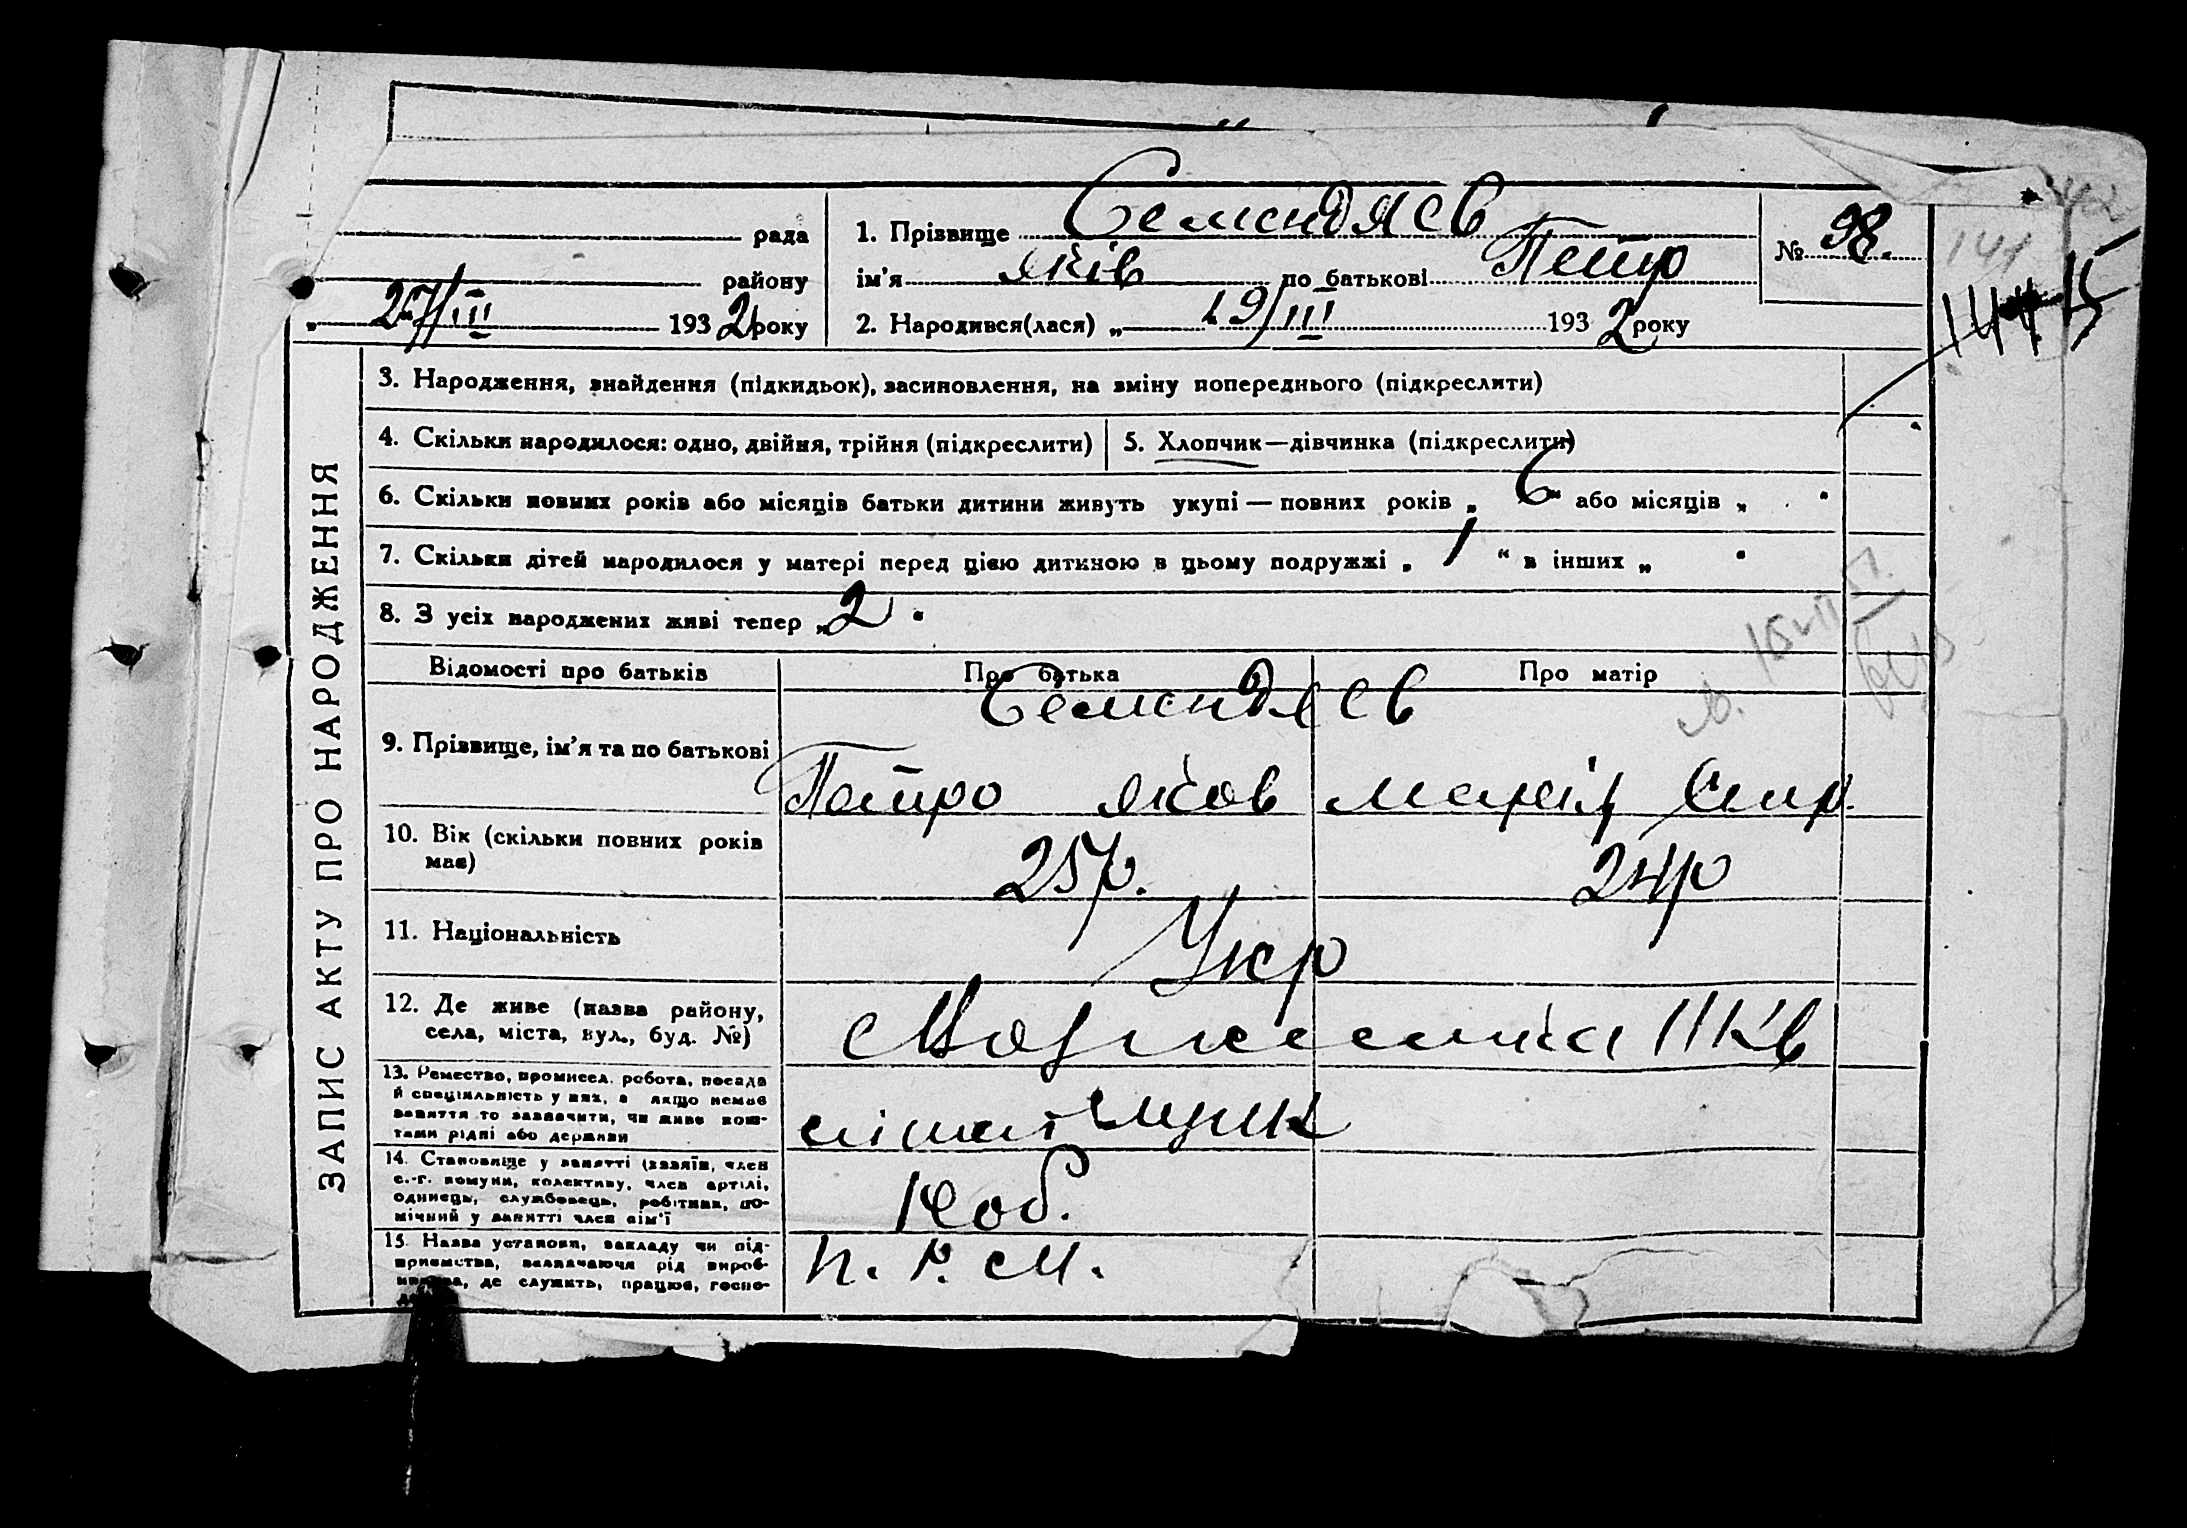 рада
району
27/III 1932 року
1. Прізвище Семендяєв
ім'я Яків по батькові Петр
2. Народився(лася) „ 19/III 1932 року
№ 98.
141
ЗАПИС АКТУ ПРО НАРОДЖЕННЯ
3. Народження, знайдення (підкидьок), засиновлення, на зміну попереднього (підкреслити)
4. Скільки народилося: одно, двійня, трійня (підкреслити)
5. Хлопчик—дівчинка (підкреслити)
6. Скільки повних років або місяців батьки дитини живуть укупі — повних років „ 6 “ або місяців „ “
7. Скільки дітей народилося у матері перед цією дитиною в цьому подружжі „ 1 “ в інших „ “
8. З усіх народжених живі тепер „ 2 “
Відомості про батьків
Про батька
Про матір
9. Прізвище, ім'я та по батькові
Семендяєв
Петро Яков
Марія
10. Вік (скільки повних років
має)
25р.
24р
11. Національність
Укр
12. Де живе (назва району,
села, міста, вул., буд. №)
13. Ремество, промисел, робота, посада
й спеціяльність у них, а якщо немає
заняття то зазначити, чи живе кош-
тами рідні або держави
14. Становище у занятті (хазяїн, член
с.-г. комуни, колективу, член артілі,
одинець, службовець, робітник, по-
мічний у занятті член сім'ї
Роб.
15. Назва установи, закладу чи під-
приємства, зазначаючи рід вироб-
ництва, де служить, працює, госпо-